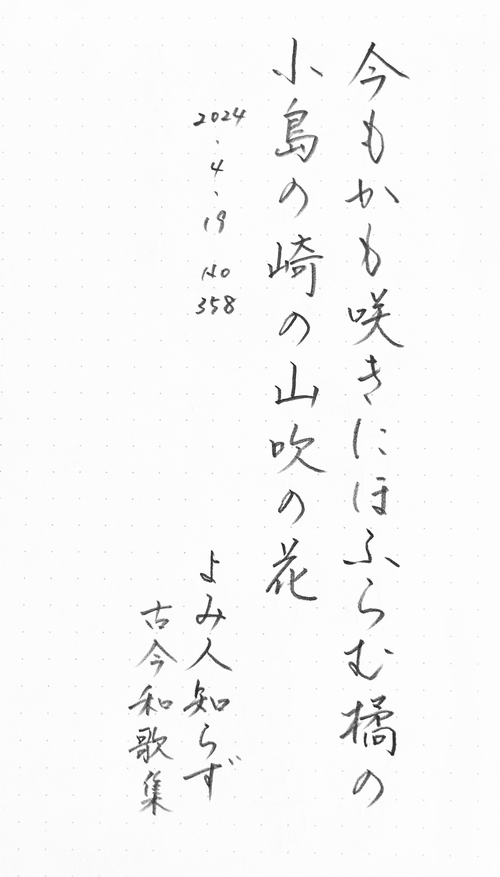 今もかも咲きにほふらむ橘の
小島の崎の山吹の花
2024.4.19 No358
よみ人知らず
古今和歌集